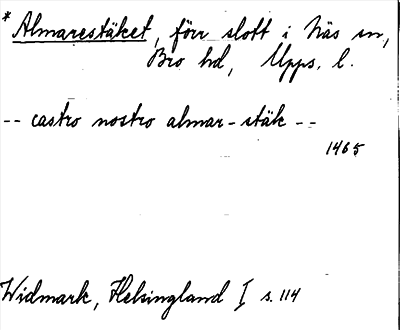 * Almarestäket, förr slott i Näs sn,
Bro hd, Upps. l.
-- castro nostro almar-stäk --
1465
Widmark, Helsingland I s. 114